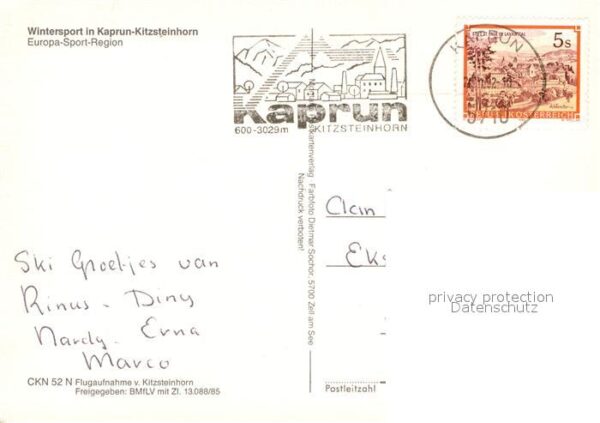 Wintersport in Kaprun-Kitzsteinhorn
Europa-Sport-Region
Kaprun
600-3029m KITZSTEINHORN
KAPRUN
5710
5s
STIFT ST. PAUL IM LAVANTTAL
REPUBLIK ÖSTERREICH
Ski Groetjes van
Rinus - Diny
Nardy - Erna
Marco
Clan
Eks
privacy protection
Datenschutz
Postkartenverlag Farbfoto Dietmar Sochor, 5700 Zell am See
Nachdruck verboten!
CKN 52 N Flugaufnahme v. Kitzsteinhorn
Freigegeben: BMfLV mit Zl. 13.088/85
Postleitzahl